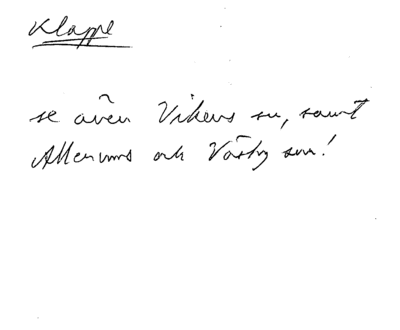 Klappe
se även Vikens sn, samt
Allerums och Väsby snr!